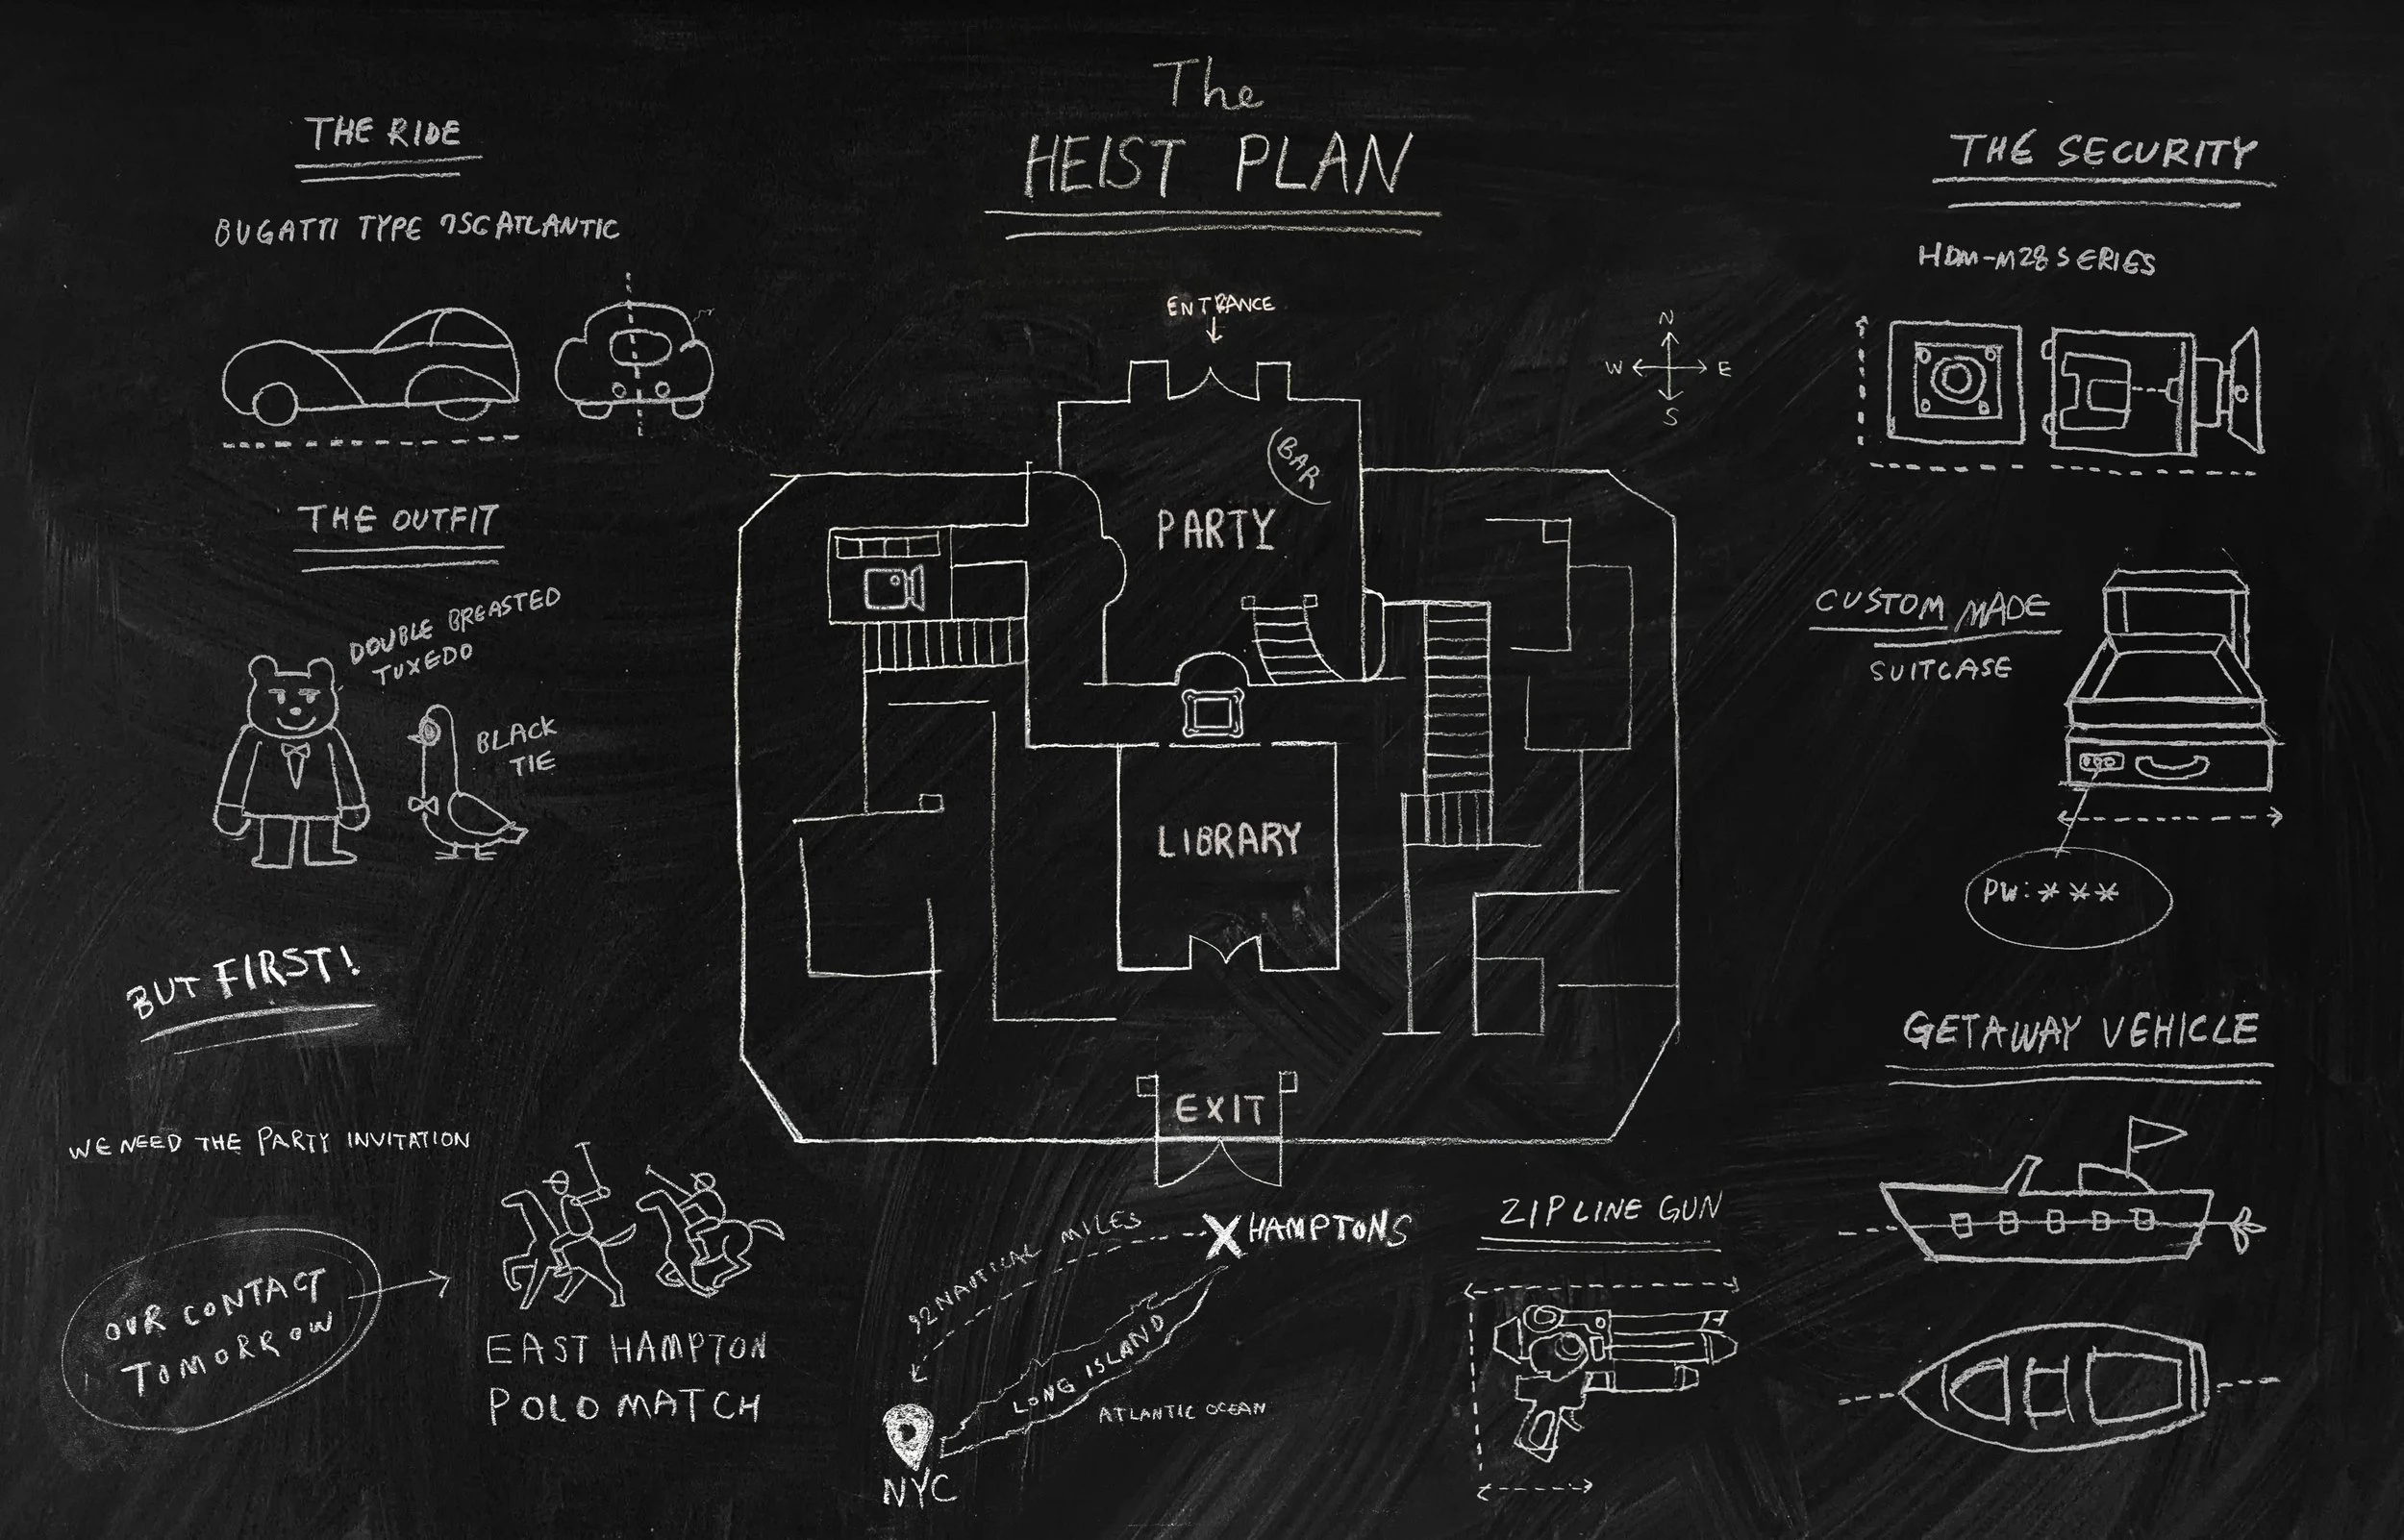 The
HEIST PLAN
THE RIDE
BUGATTI TYPE 75C ATLANTIC
THE OUTFIT
DOUBLE BREASTED
TUXEDO
BLACK
TIE
BUT FIRST!
WE NEED THE PARTY INVITATION
OUR CONTACT
TOMORROW
EAST HAMPTON
POLO MATCH
ENTRANCE
BAR
PARTY
LIBRARY
EXIT
N
W E
S
92 NAUTICAL MILES
X HAMPTONS
LONG ISLAND
ATLANTIC OCEAN
NYC
ZIPLINE GUN
THE SECURITY
HDM-M28 SERIES
CUSTOM MADE
SUITCASE
PW: ***
GETAWAY VEHICLE